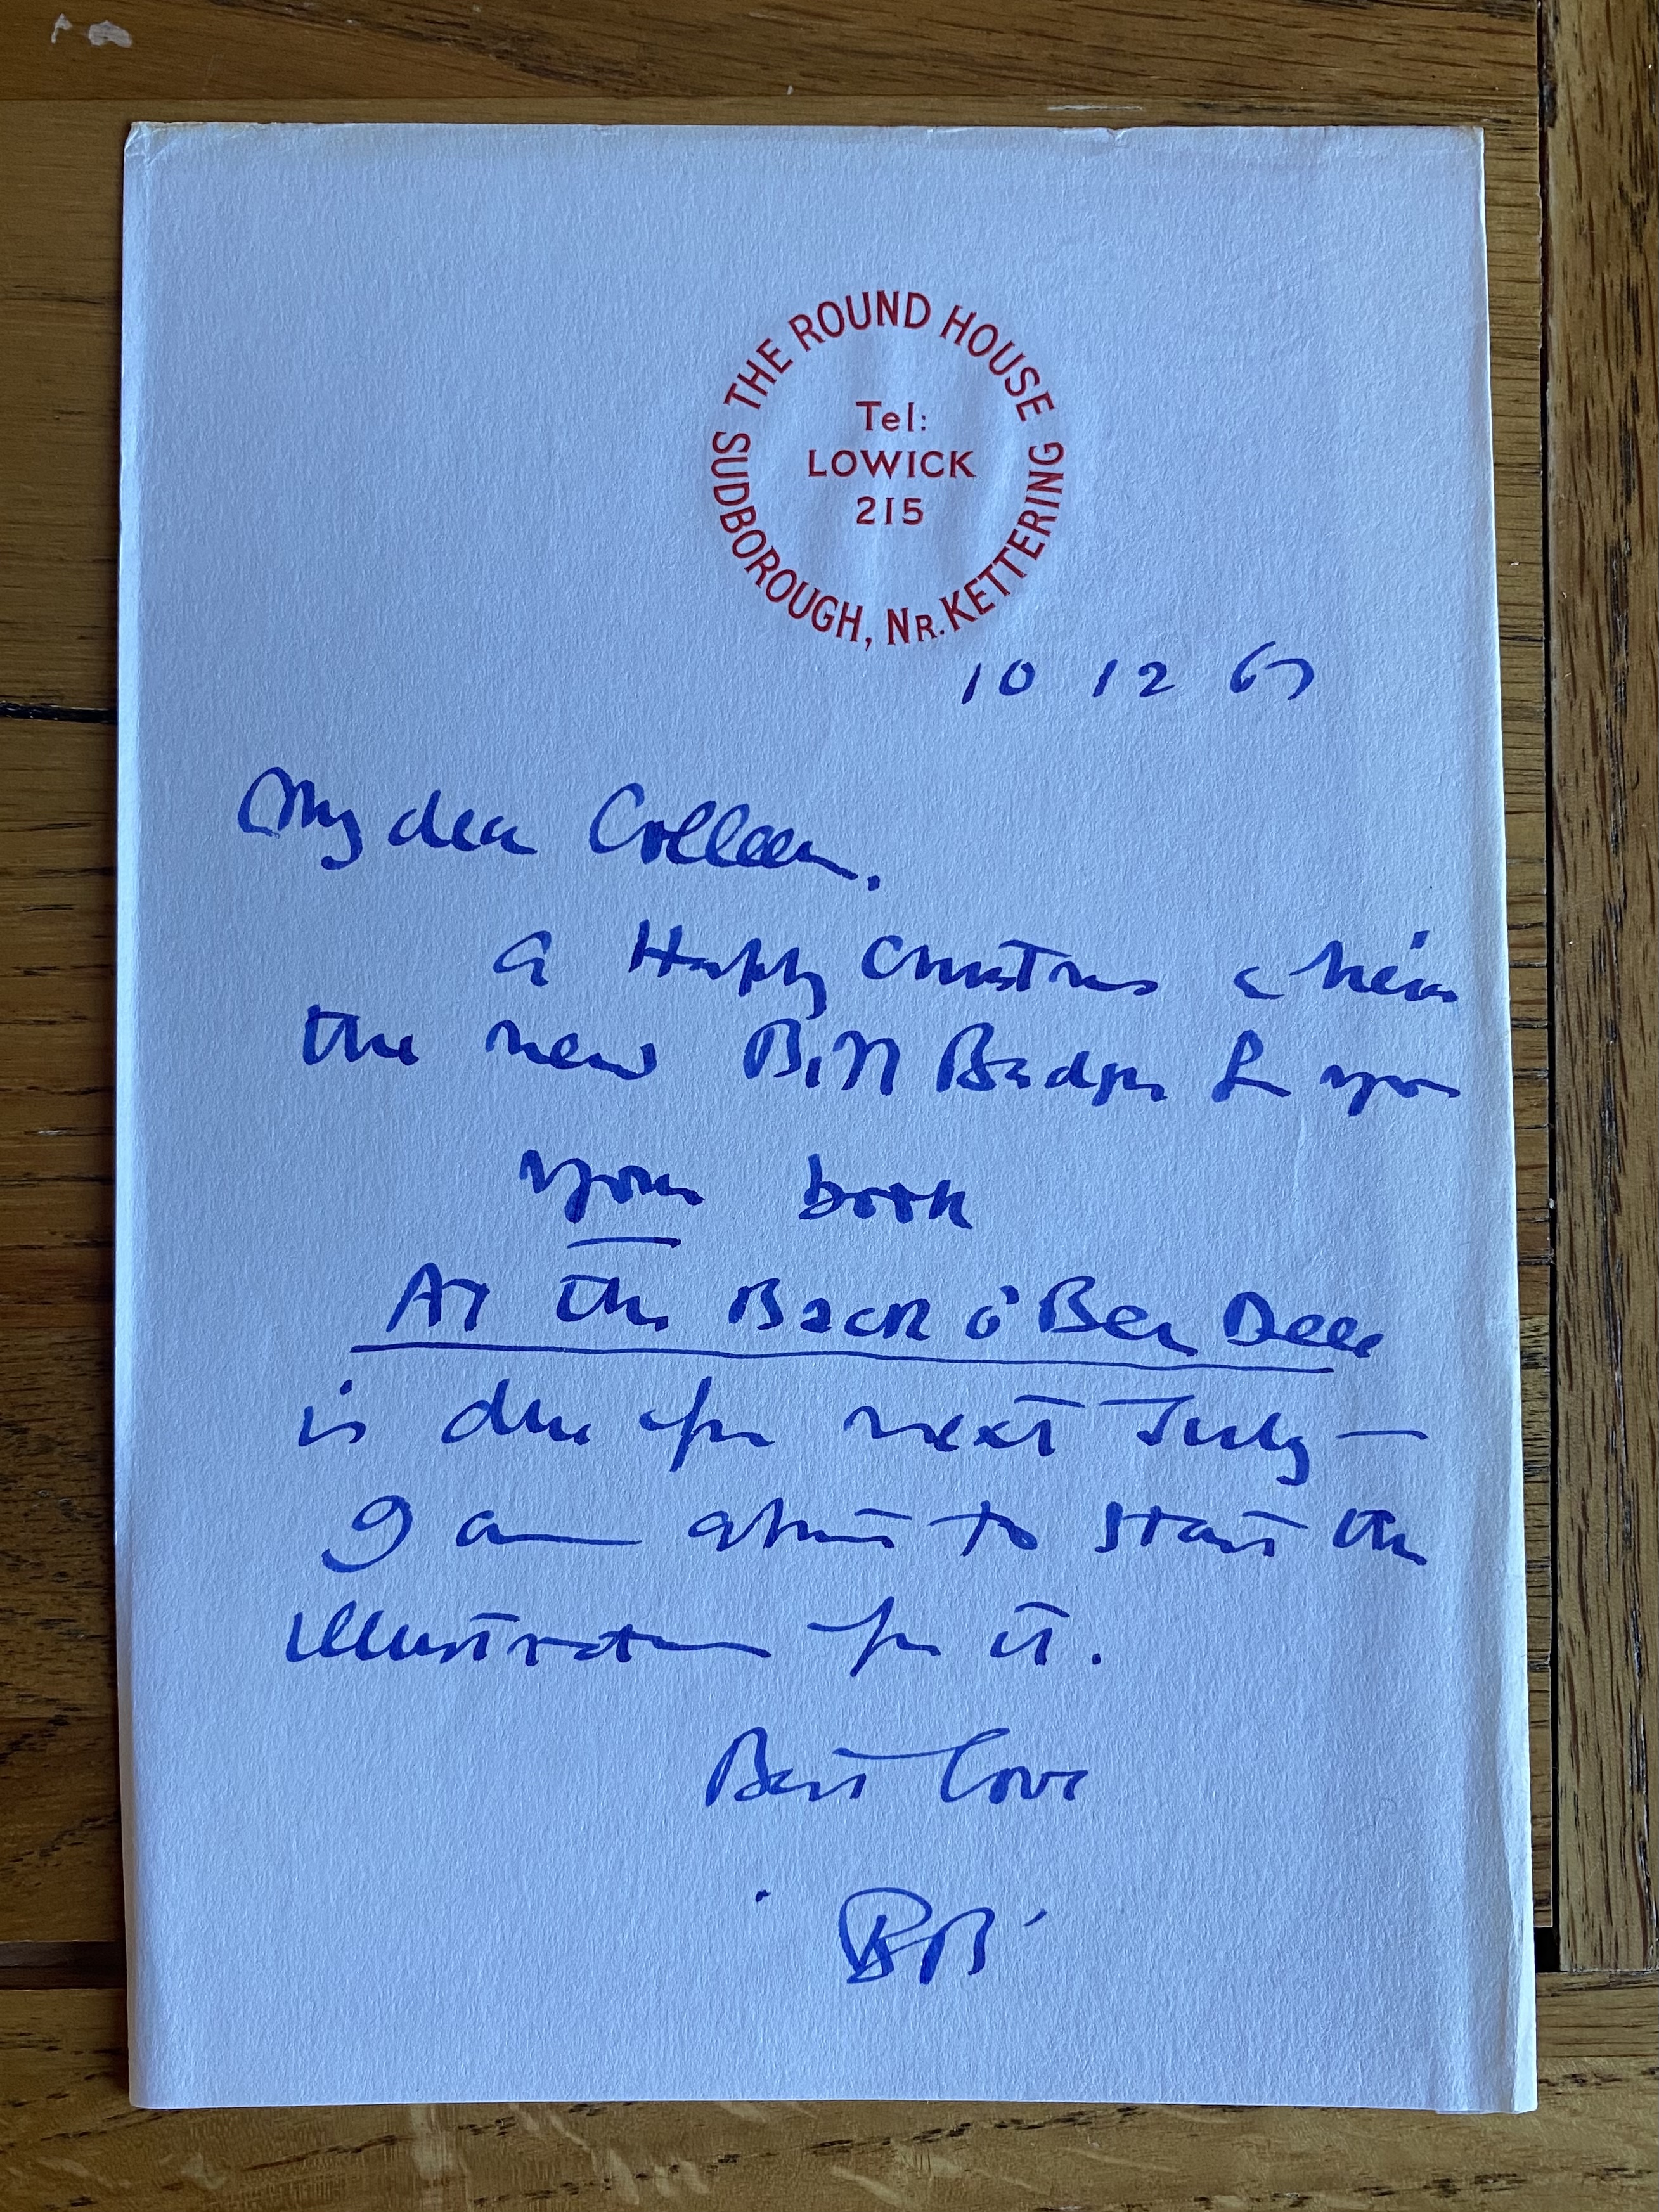 THE ROUND HOUSE
SUDBOROUGH, NR. KETTERING
Tel:
LOWICK
215
10 12 67
My dear Colleen.
A Happy Christmas & here
the new Bill Badger for you
your book
At the Back o' Ben Dee
is due for next July —
I am about to start the
illustration for it.
Best love
'BB'